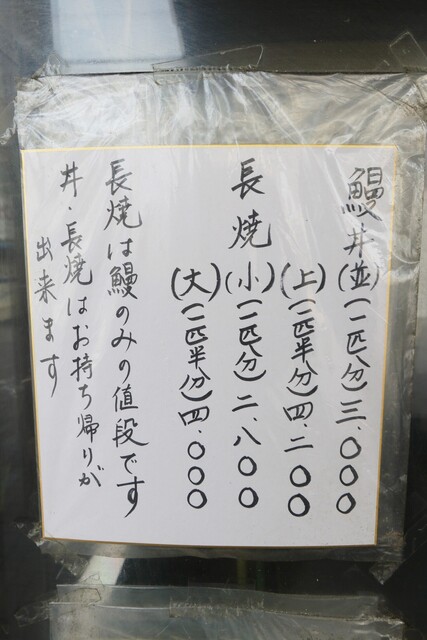 鰻丼(並)(一匹分)三、〇〇〇
(上)(一匹半分)四、二〇〇
長焼(小)(一匹分)二、八〇〇
(大)(一匹半分)四、〇〇〇
長焼は鰻のみの値段です
丼・長焼はお持ち帰りが
出来ます